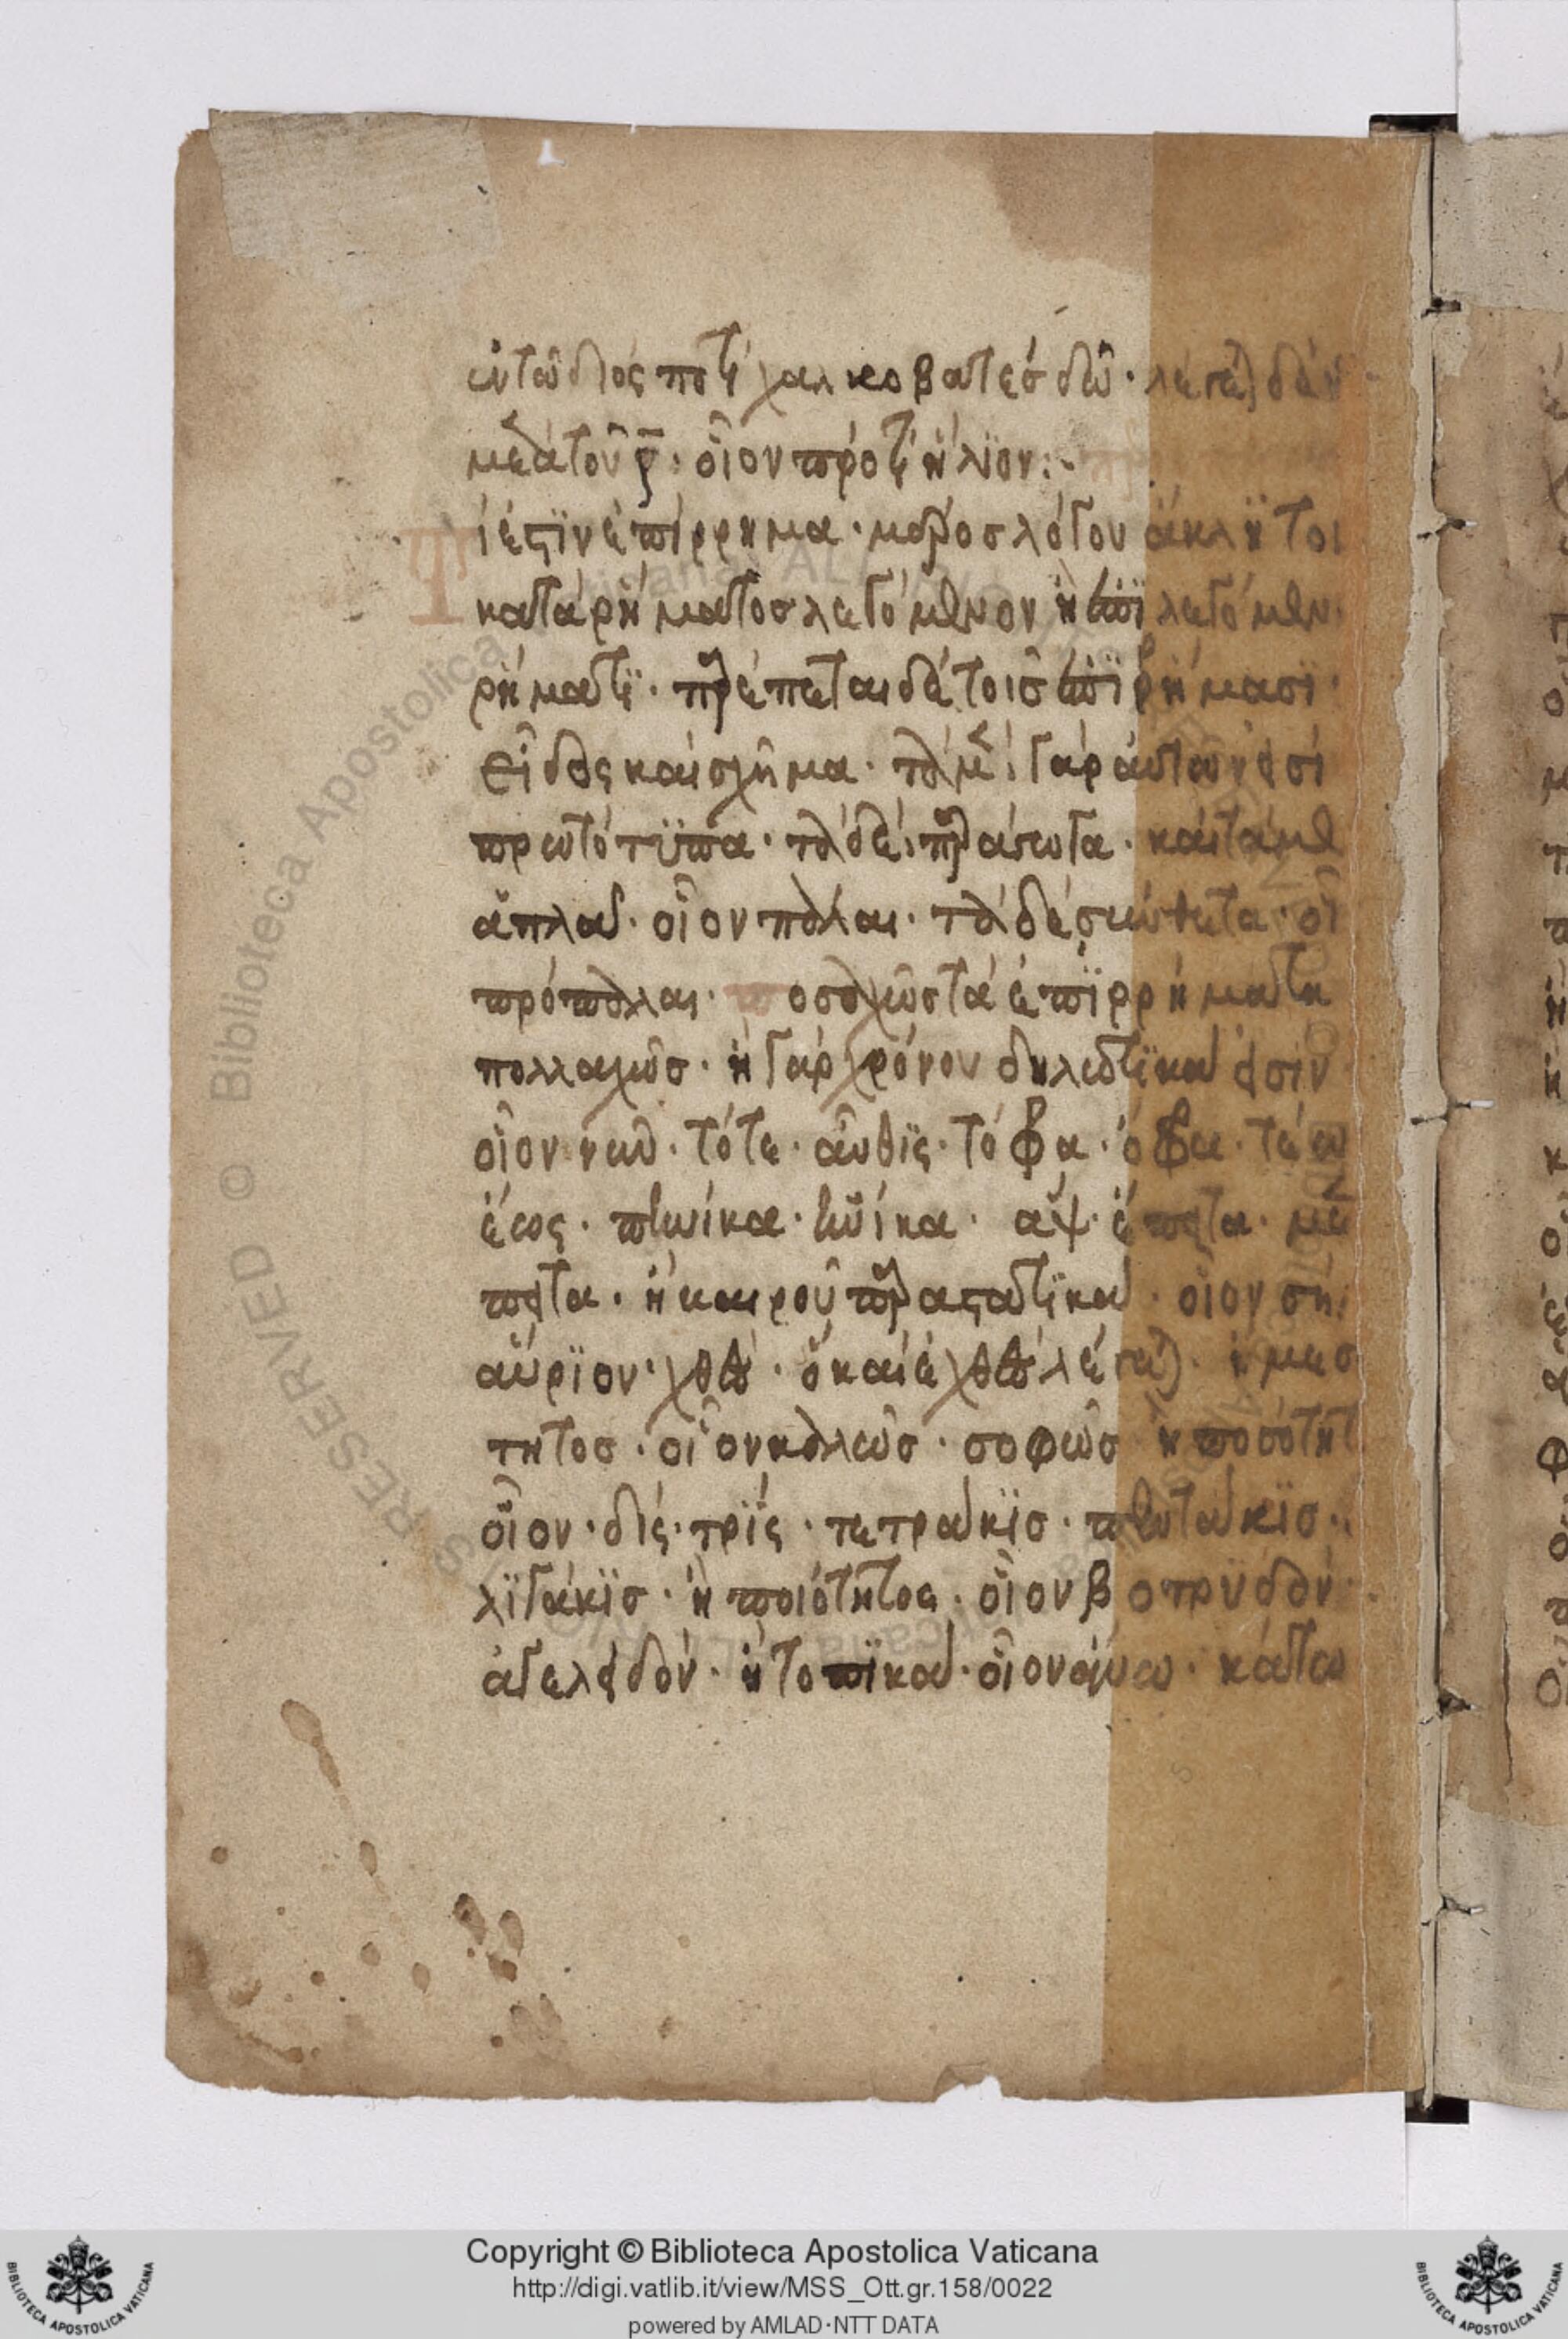 ἐν τῶ διός ποτὶ χαλκοβατὲς δῶ· λέγεται δὲ καὶ
μετὰ τοῦ ρ· οἷον προτὶ ἥλιον:
Τί ἐστὶν ἐπίρρημα· μέρος λόγου ἄκλητο
κατὰ ρήματος λεγόμενον ἢ ἐπιλεγόμεν
ρήματι· παρέπεται δὲ τοῖς ἐπιρρήμασι·
εἶδος καὶ σχῆμα· τὰ μὲν γὰρ αὐτῶν εἰσὶ
πρωτότυπα· τὰ δὲ παράγωγα· καὶ τὰ μὲν
ἁπλᾶ· οἷον πάλαι· τὰ δὲ σύνθετα· οἷ
πρόπαλαι· ποσαχῶς τὰ ἐπιρρήματα
πολλαχῶς· ἢ γὰρ χρόνου δηλωτικά εἰσιν
οἷον νῦν· τότε· αὖθις· τόφρα· ὄφρα· τέω
ἕως· πηνίκα· ἡνίκα· αἴψ· ἔπειτα· με
πειτα· ἢ καιροῦ παραστατικά· οἷον σή
αὔριον· χθὲς· ὃ καὶ ἐχθὲς λέγεται· ἢ μεσ
τητος· οἷον καλῶς· σοφῶς ἢ ποσότητ
οἷον· δίς· τρίς· τετράκις· πεντάκις·
λιγάκις· ἢ ποιότητος· οἷον βοτρυδόν·
ἀγεληδόν· ἢ τοπικά· οἷον ἄνω· κάτω
Copyright © Biblioteca Apostolica Vaticana
http://digi.vatlib.it/view/MSS_Ott.gr.158/0022
powered by AMLAD·NTT DATA